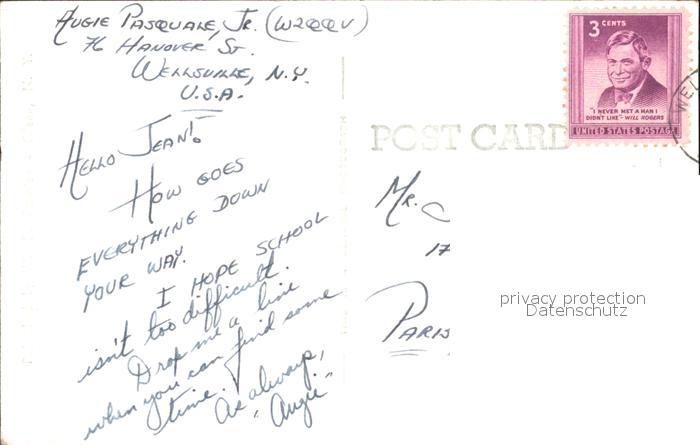 Augie Pasquale, Jr. (W2QQV)
76 Hanover St.
Wellsville, N.Y.
U.S.A.
Hello Jean!
How goes
everything down
your way.
I hope school
isn't too difficult.
Drop me a line
when you can find some
time.
As always,
"Augie"
3 CENTS
"I NEVER MET A MAN I
DIDN'T LIKE"- WILL ROGERS
UNITED STATES POSTAGE
WEL
POST CARD
Mr.
17
Paris
privacy protection
Datenschutz